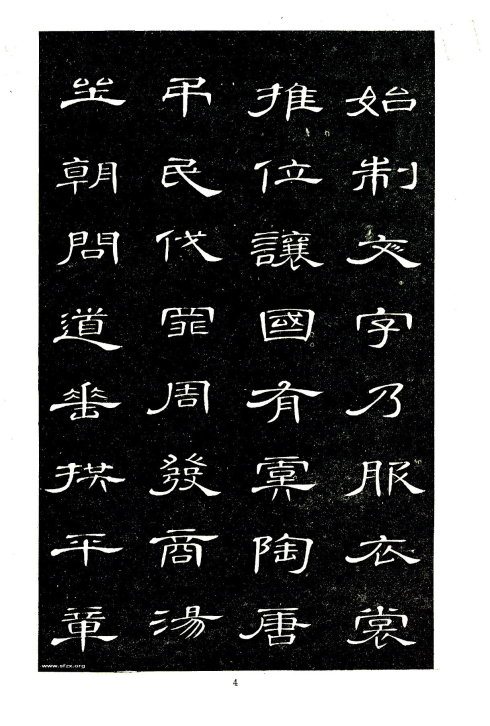 始制文字乃服衣裳
推位讓國有虞陶唐
弔民伐罪周發商湯
坐朝問道垂拱平章
www.sfzx.org
4